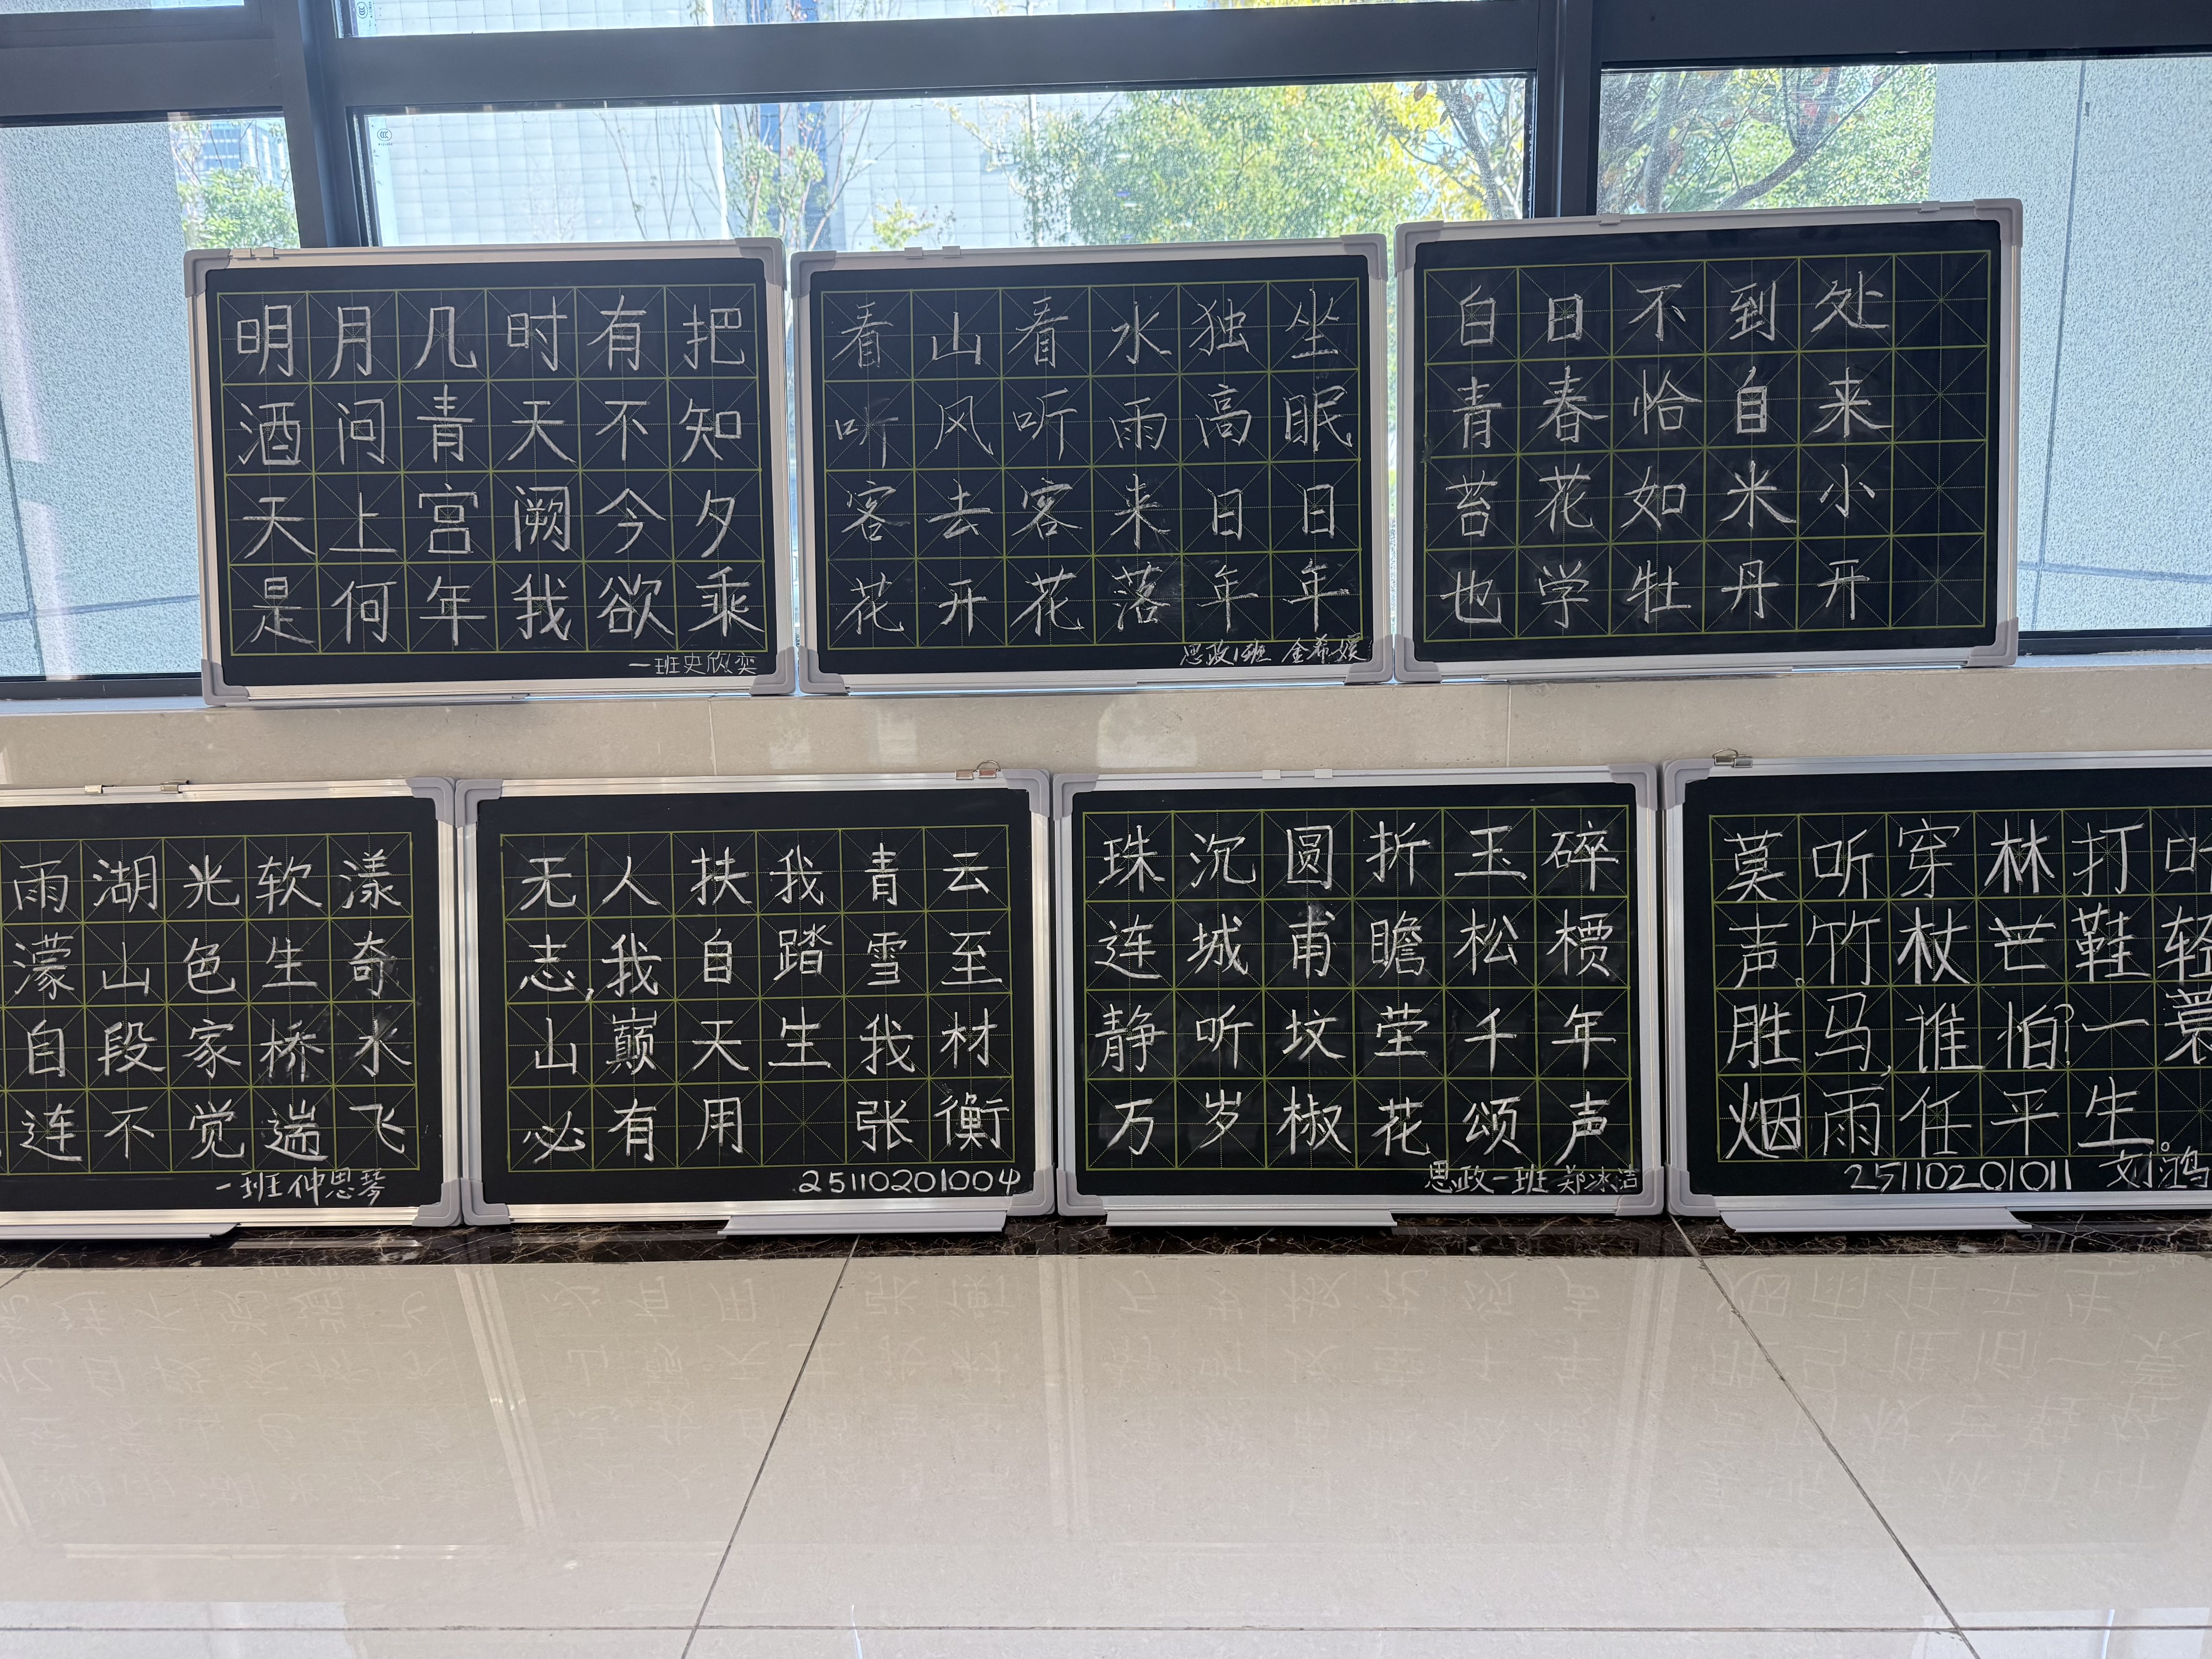 明月几时有把
酒问青天不知
天上宫阙今夕
是何年我欲乘
一班史欣奕
看山看水独坐
听风听雨高眠
客去客来日日
花开花落年年
思政1班 金希媛
白日不到处
青春恰自来
苔花如米小
也学牡丹开
雨湖光软漾
濛山色生奇
自段家桥水
连不觉遄飞
一班仲思琴
无人扶我青云
志,我自踏雪至
山巅天生我材
必有用 张衡
25110201004
珠沉圆折玉碎
连城甫瞻松槚
静听坟茔千年
万岁椒花颂声
思政一班 郑冰洁
莫听穿林打叶
声。竹杖芒鞋轻
胜马,谁怕?一蓑
烟雨任平生。
25110201011 刘鸿